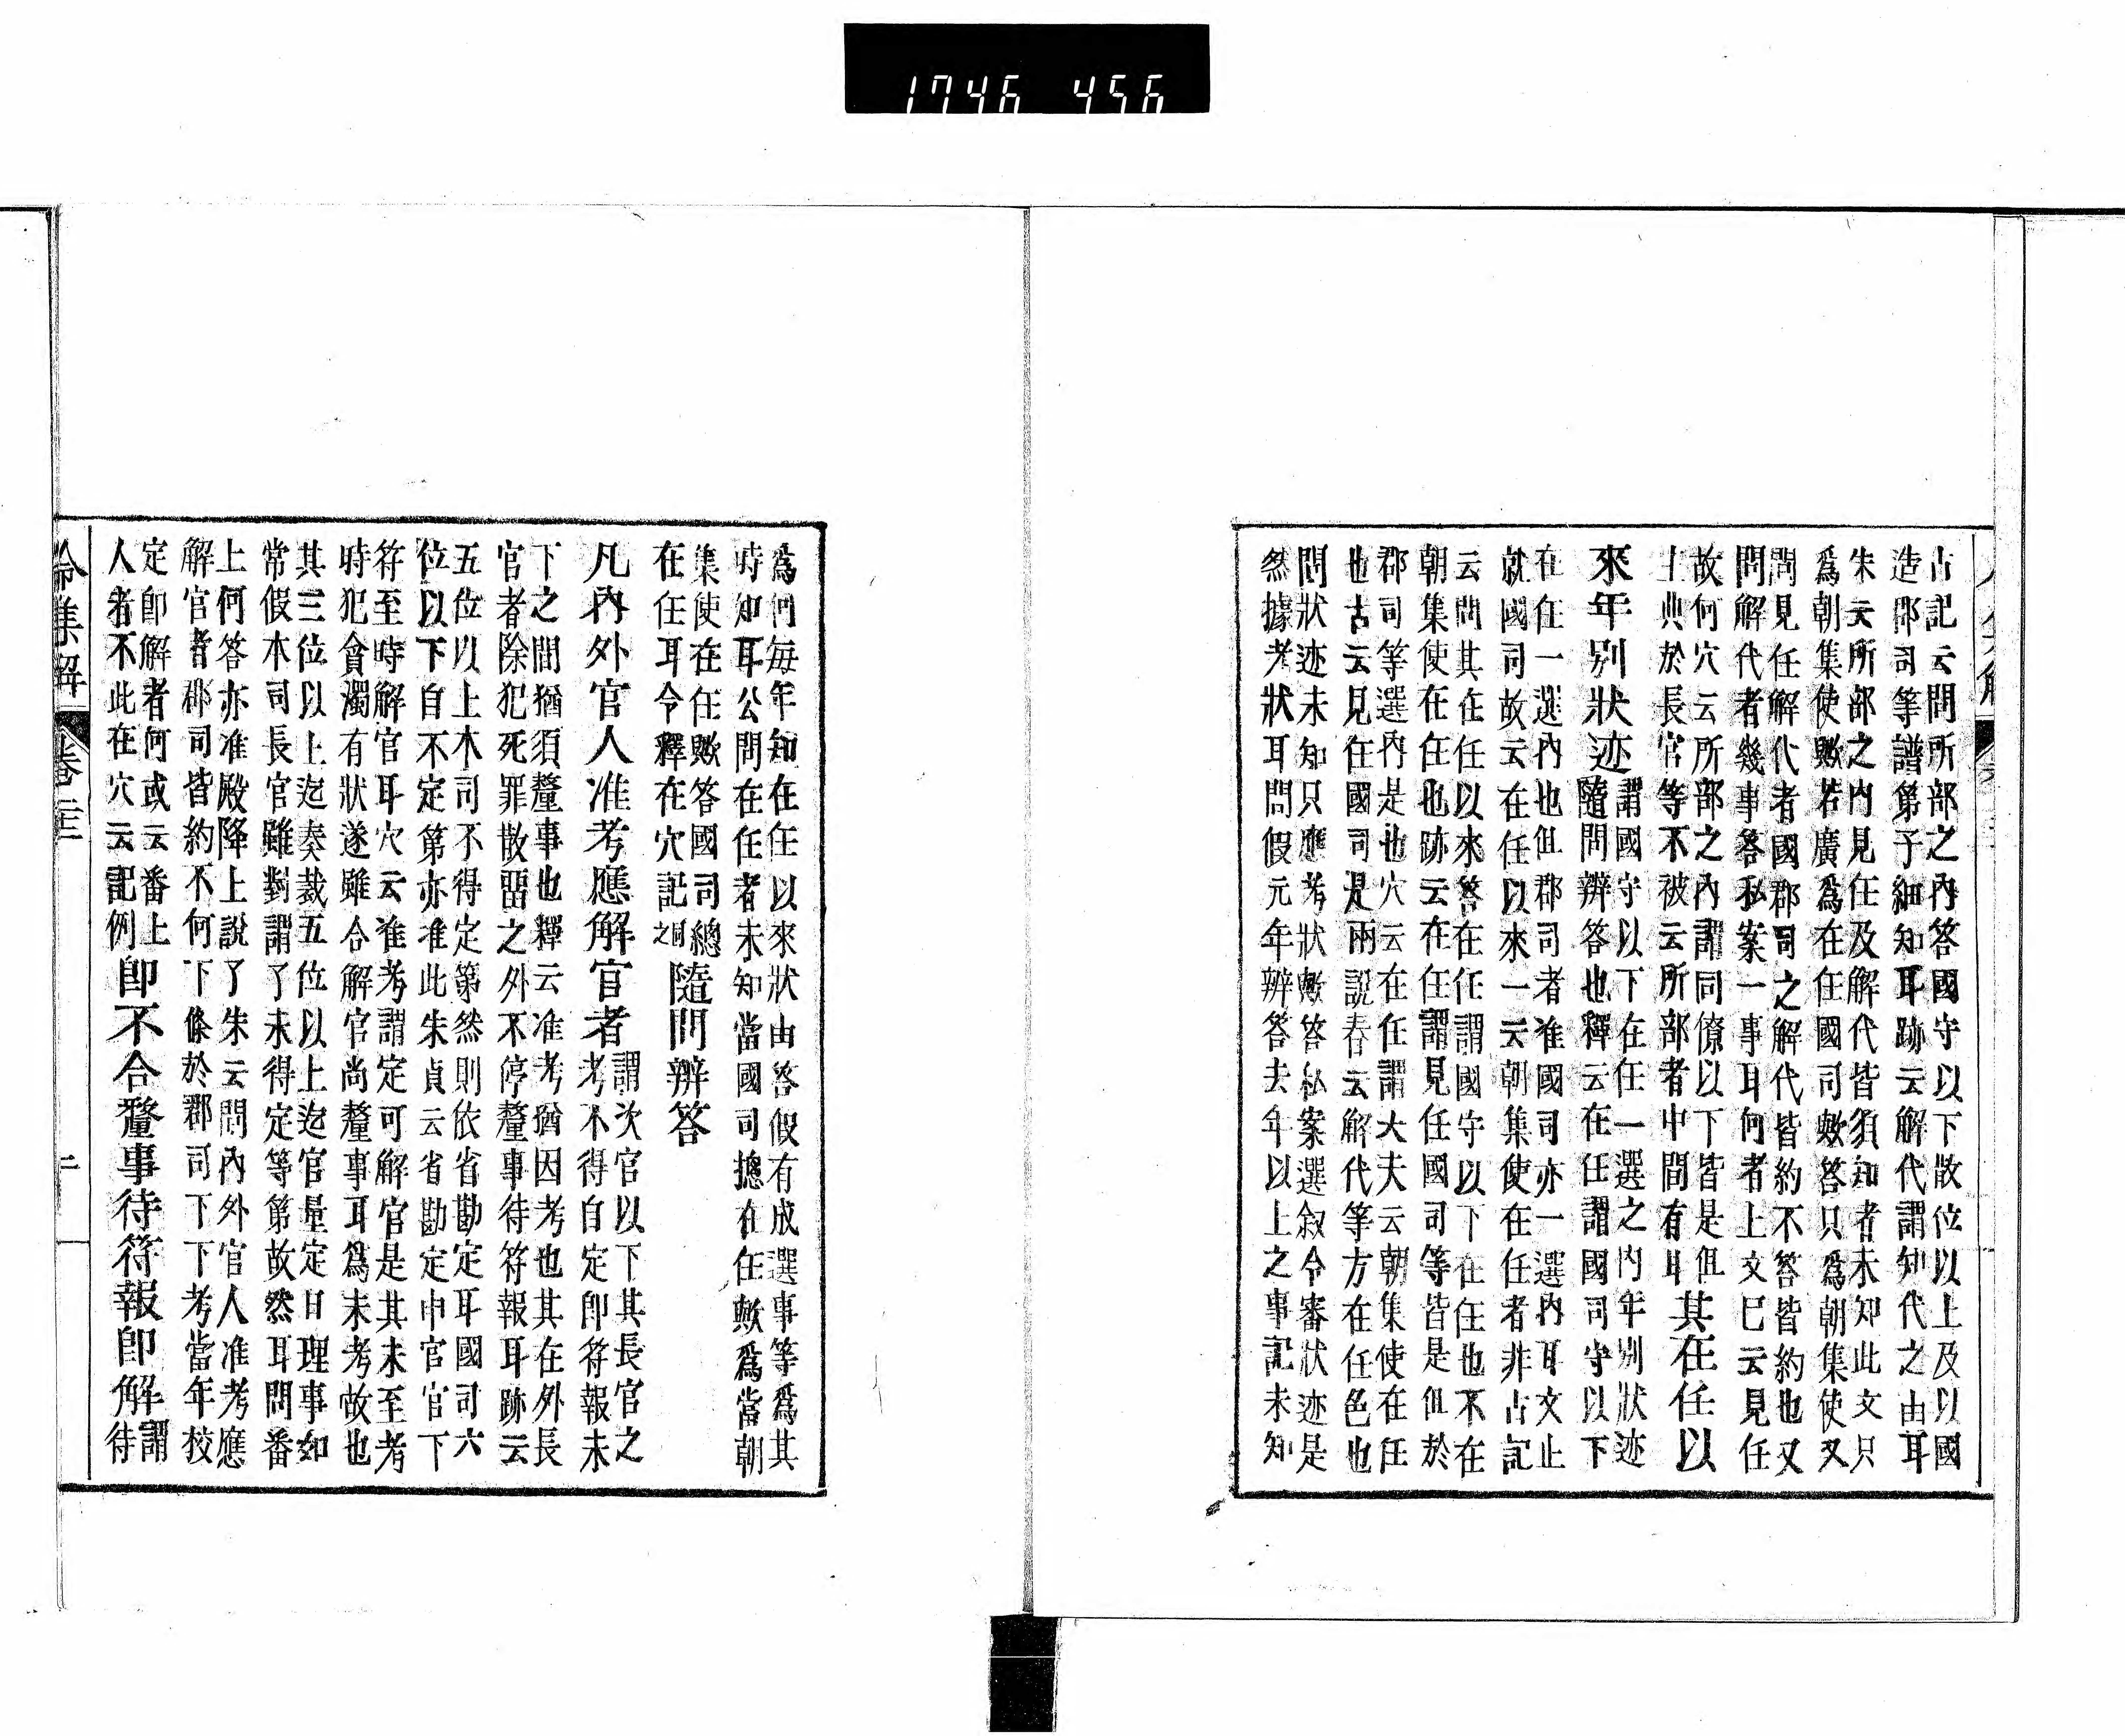 1746 456
古記云問所部之內答國守以下散位以上及以國
造郡司等譜第子細知耳跡云解代謂知代之由耳
朱云所部之內見任及解代皆須知者未知此文只
爲朝集使歟若廣爲在任國司歟答只爲朝集使又
問見任解代者國郡司之解代皆約不答皆約也又
問解代者幾事答私案一事耳何者上文已云見任
故何穴云所部之內謂同僚以下皆是但
主典於長官等不被云所部者中間有耳
其在任以
來年別狀迹
謂國守以下在任一選之內年別狀迹
隨問辨答也釋云在任謂國司守以下
在任一選內也但郡司者准國司亦一選內耳文止
就國司故云在任以來一云朝集使在任者非古記
云問其在任以來答在任謂國守以下在任也不在
朝集使在任也跡云在任謂見任國司等皆是但於
郡司等選內是也穴云在任謂大夫云朝集使在任
也古云見任國司是兩說春云解代等方在任色也
問狀迹未知只應考狀歟答私案選叙令審狀迹是
然據考狀耳問假元年辨答去年以上之事記未知
爲何每年知在任以來狀由答假有成選事等爲其
時知耳公問在任者未知當國司摠在任歟爲當朝
集使在任歟答國司總
在任耳令釋在穴記同之
隨問辨答
凡內外官人准考應解官者
謂次官以下其長官之
考不得自定卽符報未
下之間猶須釐事也釋云准考猶因考也其在外長
官者除犯死罪散留之外不停釐事待符報耳跡云
五位以上本司不得定第然則依省勘定耳國司六
位以下自不定第亦准此朱貞云省勘定申官官下
符至時解官耳穴云准考謂定可解官是其未至考
時犯貪濁有狀遂雖合解官尚釐事耳爲未考故也
其三位以上迄奏裁五位以上迄官量定日理事如
常假本司長官雖對謂了未得定等第故然耳問番
上何答亦准殿降上說了朱云問內外官人准考應
解官者郡司皆約不何下條於郡司下下考當年挍
定卽解者何或云番上
人者不此在穴云記例
卽不合釐事待符報卽解
謂
待
令集解 卷二十二